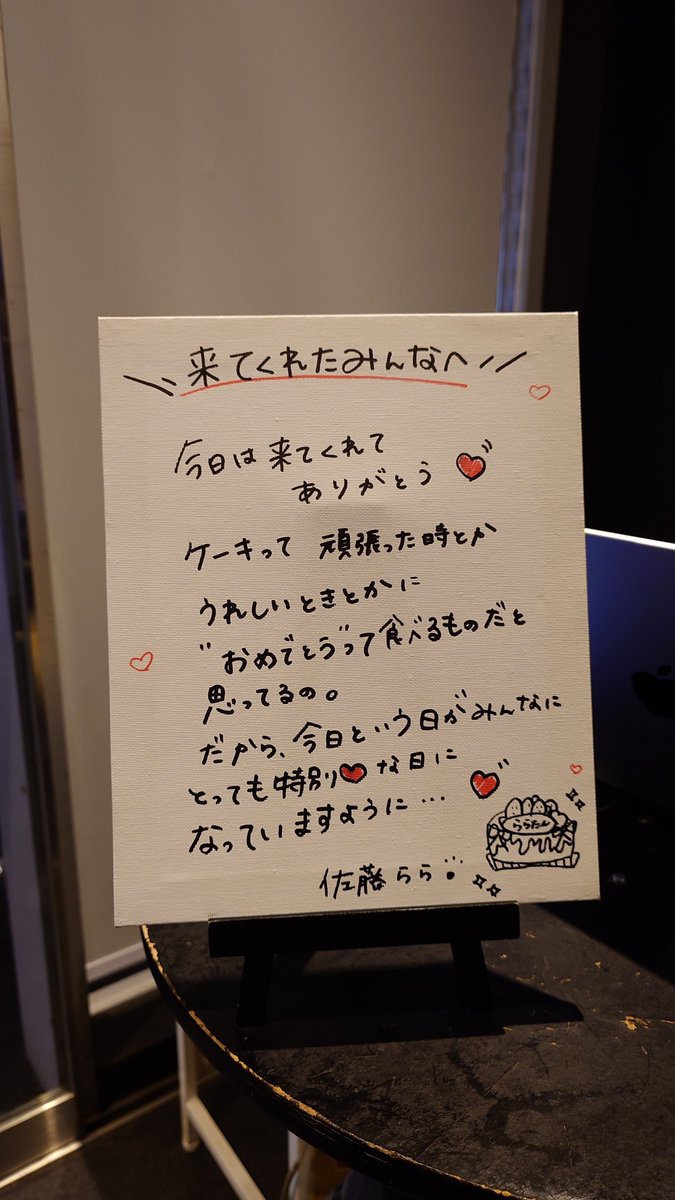 来てくれたみんなへ
今日は来てくれて
ありがとう
ケーキって 頑張った時とか
うれしいときとかに
"おめでとう"って食べるものだと
思ってるの。
だから、今日という日がみんなに
とっても特別な日に
なっていますように…
ららたん
佐藤らら